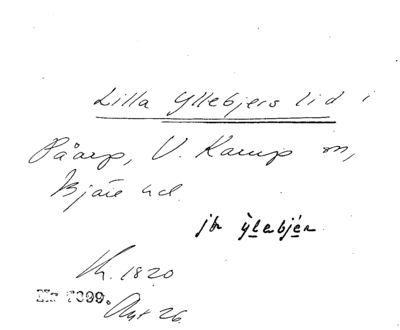 Lilla Yllebjers lid i
Påarp, V. Karup sn,
Bjäre hd.
jfr ỳlebjér
Lh. 1820
Nr 7099. Akt 26.